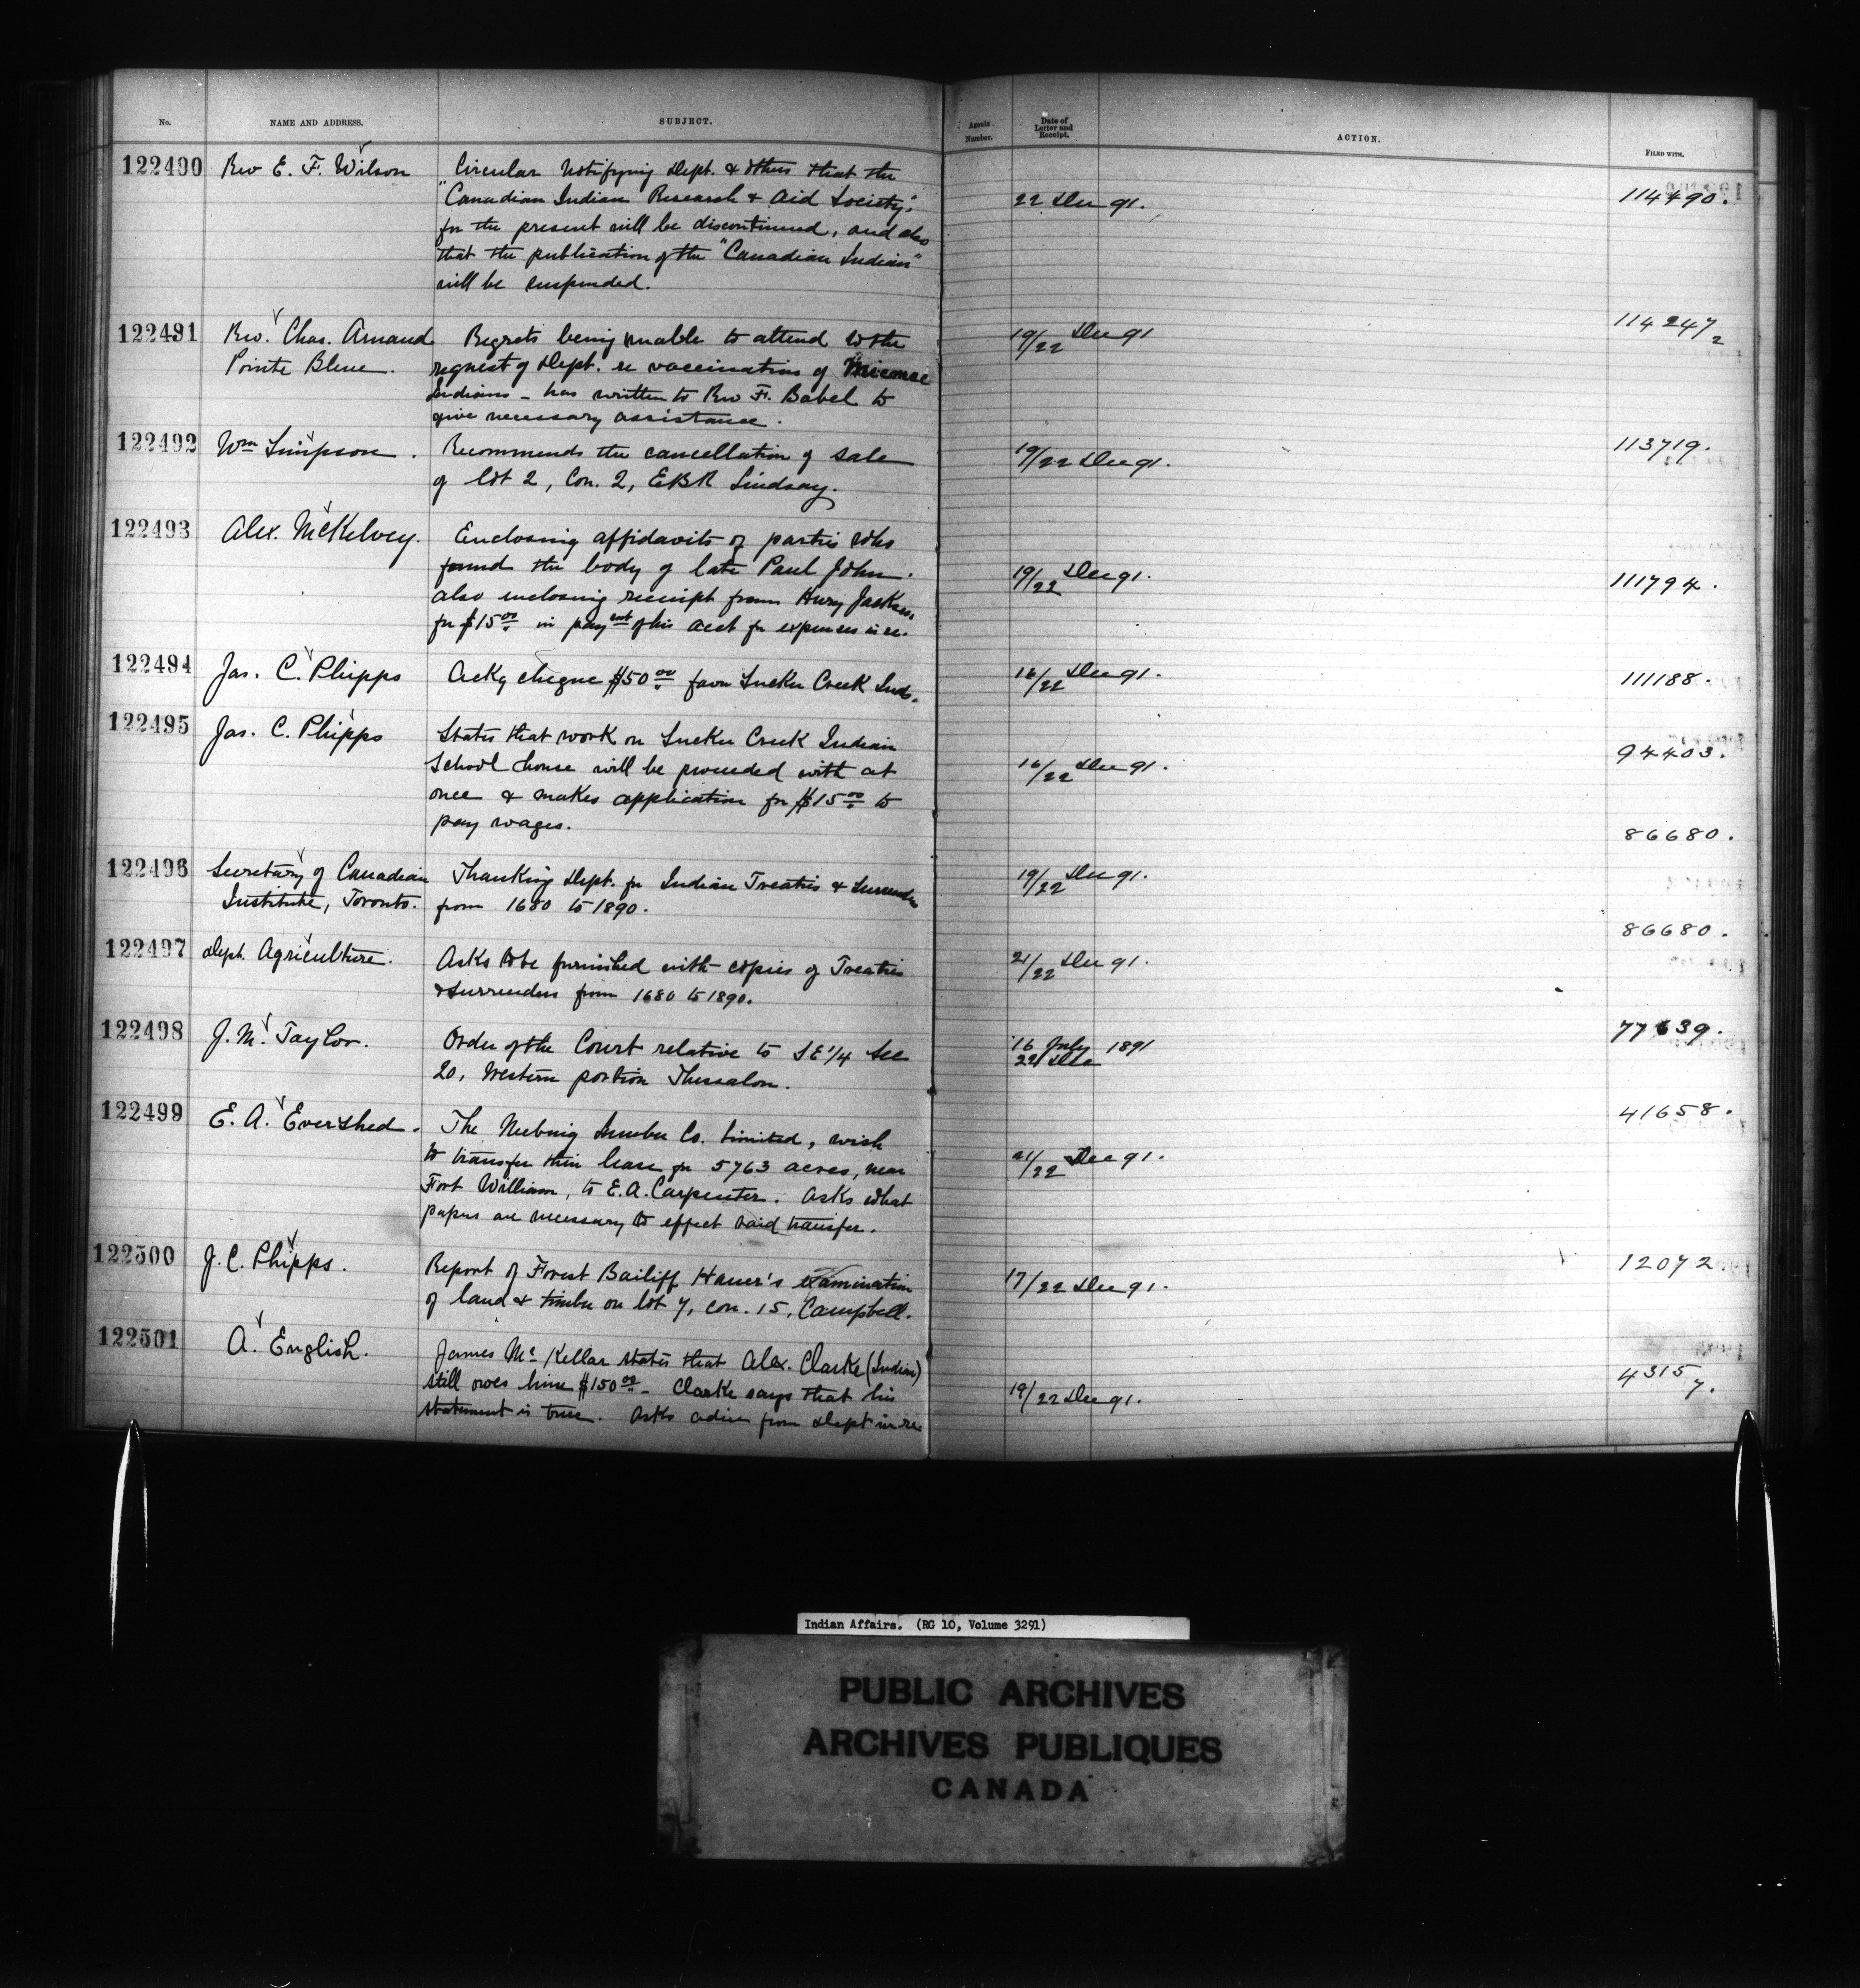 No.
NAME AND ADDRESS.
SUBJECT.
Agents Number.
Date of Letter and Receipt.
ACTION.
FILED WITH.
122490 Rev E. F. Wilson
Circular Notifying Dept. & others that the
"Canadian Indian Research & Aid Society",
for the present will be discontinued, and also
that the publication of the "Canadian Indian"
will be suspended.
22 Dec 91.
114490.
122491 Rev. Chas. Arnaud
Pointe Bleue.
Regrets being unable to attend to the
request of Dept. re vaccination of Micmac
Indians - has written to Rev F. Babel to
give necessary assistance.
19/22 Dec 91
114247/2
122492 Wm Simpson.
Recommends the cancellation of sale
of lot 2, Con. 2, EBR Lindsay.
19/22 Dec 91.
113719.
122493 Alex. McKelvey.
Enclosing affidavits of parties who
found the body of late Paul John.
also enclosing receipt from Henry Jackson
for $15.00 in payent of his acct for expenses in re.
19/22 Dec 91.
111794.
122494 Jas. C. Phipps
Ackg cheque $50.00 favor Sucker Creek Inds.
16/22 Dec 91.
111188.
122495 Jas. C. Phipps
States that work on Sucker Creek Indian
School house will be proceeded with at
once & makes application for $15.00 to
pay wages.
16/22 Dec 91.
94403.
122496 Secretary of Canadian
Institute, Toronto.
Thanking Dept. for Indian Treaties & Surrenders
from 1680 to 1890.
19/22 Dec 91.
86680.
122497 Dept. Agriculture.
Asks to be furnished with copies of Treaties
& Surrenders from 1680 to 1890.
21/22 Dec 91.
86680.
122498 J. M. Taylor.
Order of the Court relative to SE 1/4 Sec
20, Western portion Thessalon.
16 July 1891
22 Dec
77639.
122499 E. A. Evershed.
The Neebing Lumber Co. Limited, wish
to transfer their lease for 5763 acres, near
Fort William, to E. A. Carpenter. Asks what
papers are necessary to effect said transfer.
21/22 Dec 91.
41658.
122500 J. C. Phipps.
Report of Forest Bailiff Haner's examination
of land & timber on lot 7, con. 15, Campbell.
17/22 Dec 91.
12072.
122501 A. English.
James Mc Kellar states that Alex. Clarke (Indian)
still owes him $150.00 - Clarke says that his
statement is true. Asks advice from Dept in re
19/22 Dec 91.
4315/7.
Indian Affairs. (RG 10, Volume 3291)
PUBLIC ARCHIVES
ARCHIVES PUBLIQUES
CANADA